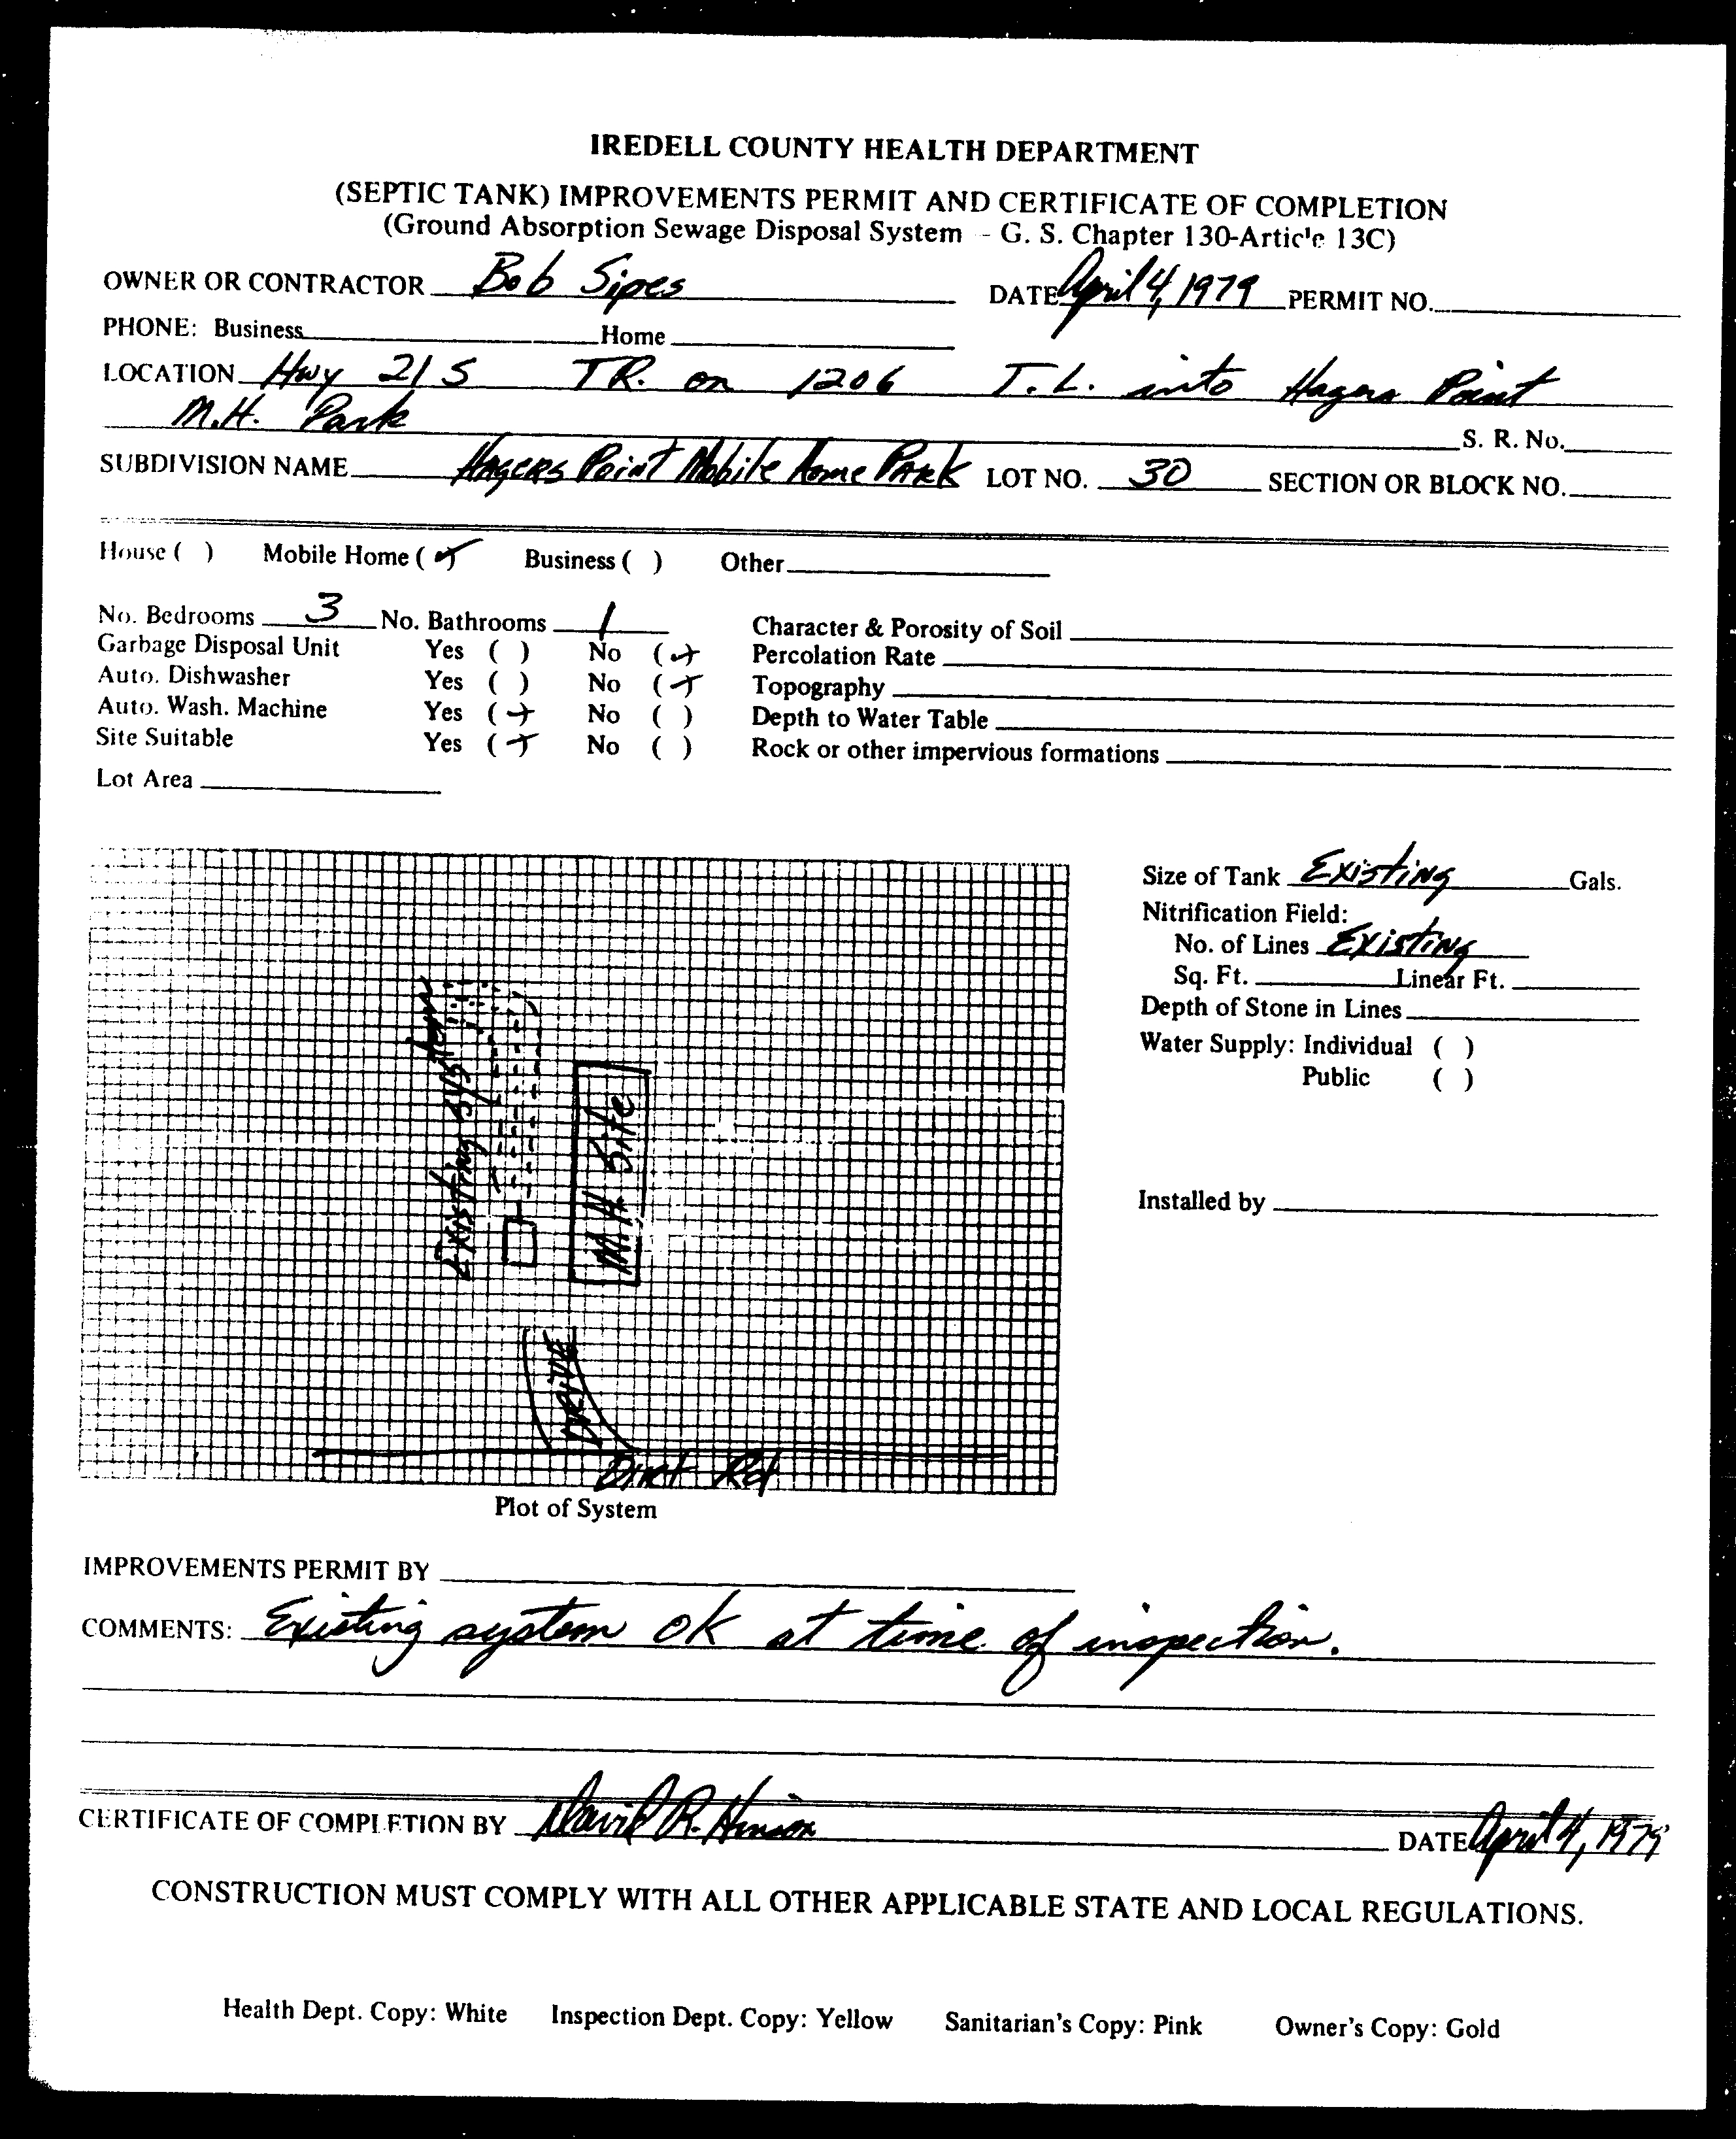 IREDELL COUNTY HEALTH DEPARTMENT
(SEPTIC TANK) IMPROVEMENTS PERMIT AND CERTIFICATE OF COMPLETION
(Ground Absorption Sewage Disposal System - G. S. Chapter 130-Article 13C)
OWNER OR CONTRACTOR Bob Sipes DATE April 4, 1979 PERMIT NO.
PHONE: Business Home
LOCATION Hwy 21 S TR. on 1206 T.L. into Hagers Point
M.H. Park S. R. No.
SUBDIVISION NAME Hagers Point Mobile Home Park LOT NO. 30 SECTION OR BLOCK NO.
House ( ) Mobile Home (✓) Business ( ) Other
No. Bedrooms 3 No. Bathrooms 1 Character & Porosity of Soil
Garbage Disposal Unit Yes ( ) No (✓) Percolation Rate
Auto. Dishwasher Yes ( ) No (✓) Topography
Auto. Wash. Machine Yes (✓) No ( ) Depth to Water Table
Site Suitable Yes (✓) No ( ) Rock or other impervious formations
Lot Area
Size of Tank Existing Gals.
Nitrification Field:
No. of Lines Existing
Sq. Ft. Linear Ft.
Depth of Stone in Lines
Water Supply: Individual ( )
Public ( )
Installed by
Existing System
M.H. Site
DRIVE
Dirt Rd
Plot of System
IMPROVEMENTS PERMIT BY
COMMENTS: Existing system ok at time of inspection.
CERTIFICATE OF COMPLETION BY David R. Hinson DATE April 4, 1979
CONSTRUCTION MUST COMPLY WITH ALL OTHER APPLICABLE STATE AND LOCAL REGULATIONS.
Health Dept. Copy: White Inspection Dept. Copy: Yellow Sanitarian's Copy: Pink Owner's Copy: Gold